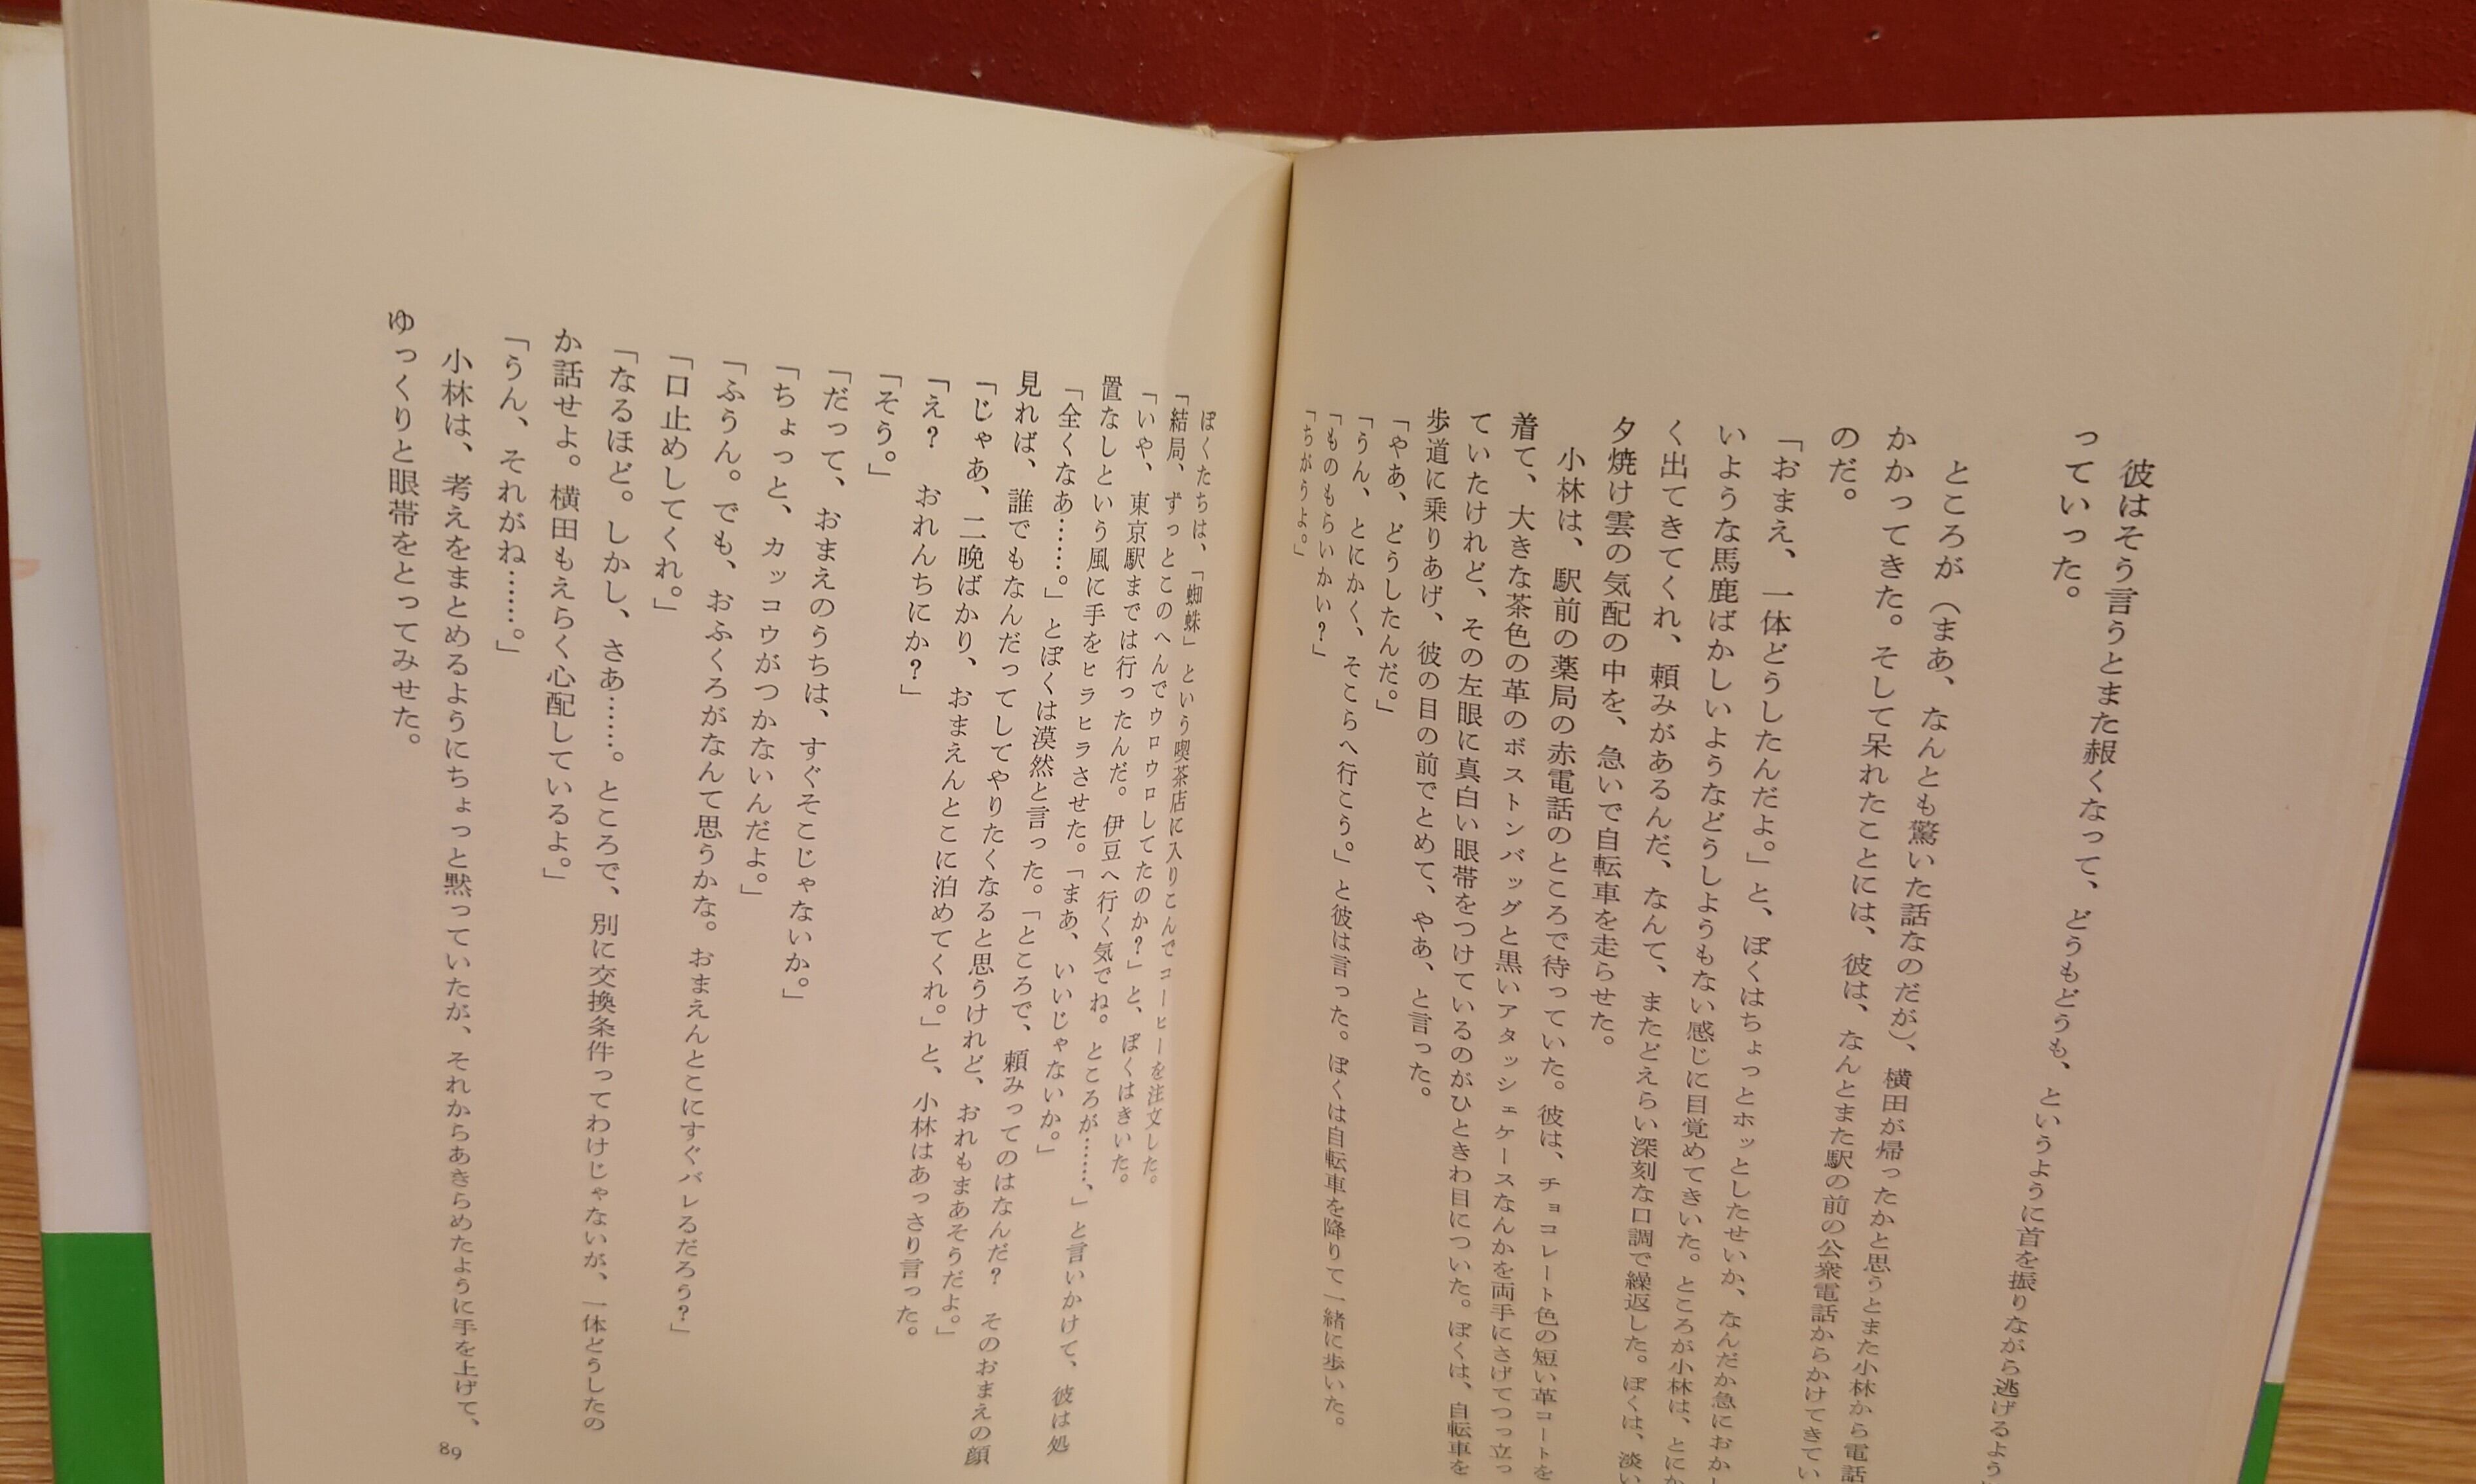 彼はそう言うとまた赧くなって、どうもどうも、というように首を振りながら逃げるよう
っていった。
ところが（まあ、なんとも驚いた話なのだが）、横田が帰ったかと思うとまた小林から電話
かかってきた。そして呆れたことには、彼は、なんとまた駅の前の公衆電話からかけてきてい
のだ。
「おまえ、一体どうしたんだよ。」と、ぼくはちょっとホッとしたせいか、なんだか急におかし
いような馬鹿ばかしいようなどうしようもない感じに目覚めてきいた。ところが小林は、とにか
く出てきてくれ、頼みがあるんだ、なんて、またどえらい深刻な口調で繰返した。ぼくは、淡い
夕焼け雲の気配の中を、急いで自転車を走らせた。
小林は、駅前の薬局の赤電話のところで待っていた。彼は、チョコレート色の短い革コートを
着て、大きな茶色の革のボストンバッグと黒いアタッシェケースなんかを両手にさげてつっ立っ
ていたけれど、その左眼に真白い眼帯をつけているのがひときわ目についた。ぼくは、自転車を
歩道に乗りあげ、彼の目の前でとめて、やあ、と言った。
「やあ、どうしたんだ。」
「うん、とにかく、そこらへ行こう。」と彼は言った。ぼくは自転車を降りて一緒に歩いた。
「ものもらいかい？」
「ちがうよ。」
ぼくたちは、「蜘蛛」という喫茶店に入りこんでコーヒーを注文した。
「結局、ずっとこのへんでウロウロしてたのか？」と、ぼくはきいた。
「いや、東京駅までは行ったんだ。伊豆へ行く気でね。ところが……、」と言いかけて、彼は処
置なしという風に手をヒラヒラさせた。「まあ、いいじゃないか。」
「全くなあ……。」とぼくは漠然と言った。「ところで、頼みってのはなんだ？　そのおまえの顔
見れば、誰でもなんだってしてやりたくなると思うけれど、おれもまあそうだよ。」
「じゃあ、二晩ばかり、おまえんとこに泊めてくれ。」と、小林はあっさり言った。
「え？　おれんちにか？」
「そう。」
「だって、おまえのうちは、すぐそこじゃないか。」
「ちょっと、カッコウがつかないんだよ。」
「ふうん。でも、おふくろがなんて思うかな。おまえんとこにすぐバレるだろう？」
「口止めしてくれ。」
「なるほど。しかし、さあ……。ところで、別に交換条件ってわけじゃないが、一体どうしたの
か話せよ。横田もえらく心配しているよ。」
「うん、それがね……。」
小林は、考えをまとめるようにちょっと黙っていたが、それからあきらめたように手を上げて、
ゆっくりと眼帯をとってみせた。
89